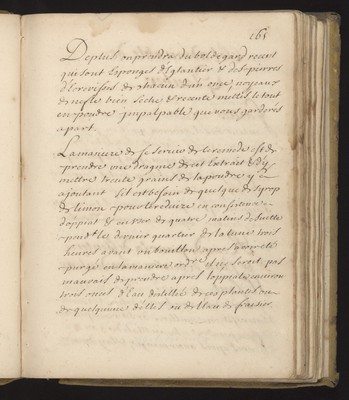 161
De plus on prendra du bedegard recent
qui sont Eponges d'Eglantier & des pierres
d'Ecrevisses de chacun d'un once, noyeaux
de nefle bien seche & recente mellés le tout
en poudre impalpable que vous garderes
apart.
La maniere de se servir de ce remede est de
prendre une dragme de cet Extrait & d'y
mettre trente grains de la poudre y
ajoutant s'il est besoin de quelque syrop
de limon pour le reduire en consistence
d'oppiat & en user de quatre matins de suitte
pend.t le dernier quartier de la lune trois
heures avant un bouillon apres avoir eté
purgé en la maniere ord.re il ne seroit pas
mauvais de prendre apres l'oppiate environ
trois onces d'Eau distillée de ces plantes ou
de quelqu'une d'elles ou de l'Eau de fraises.